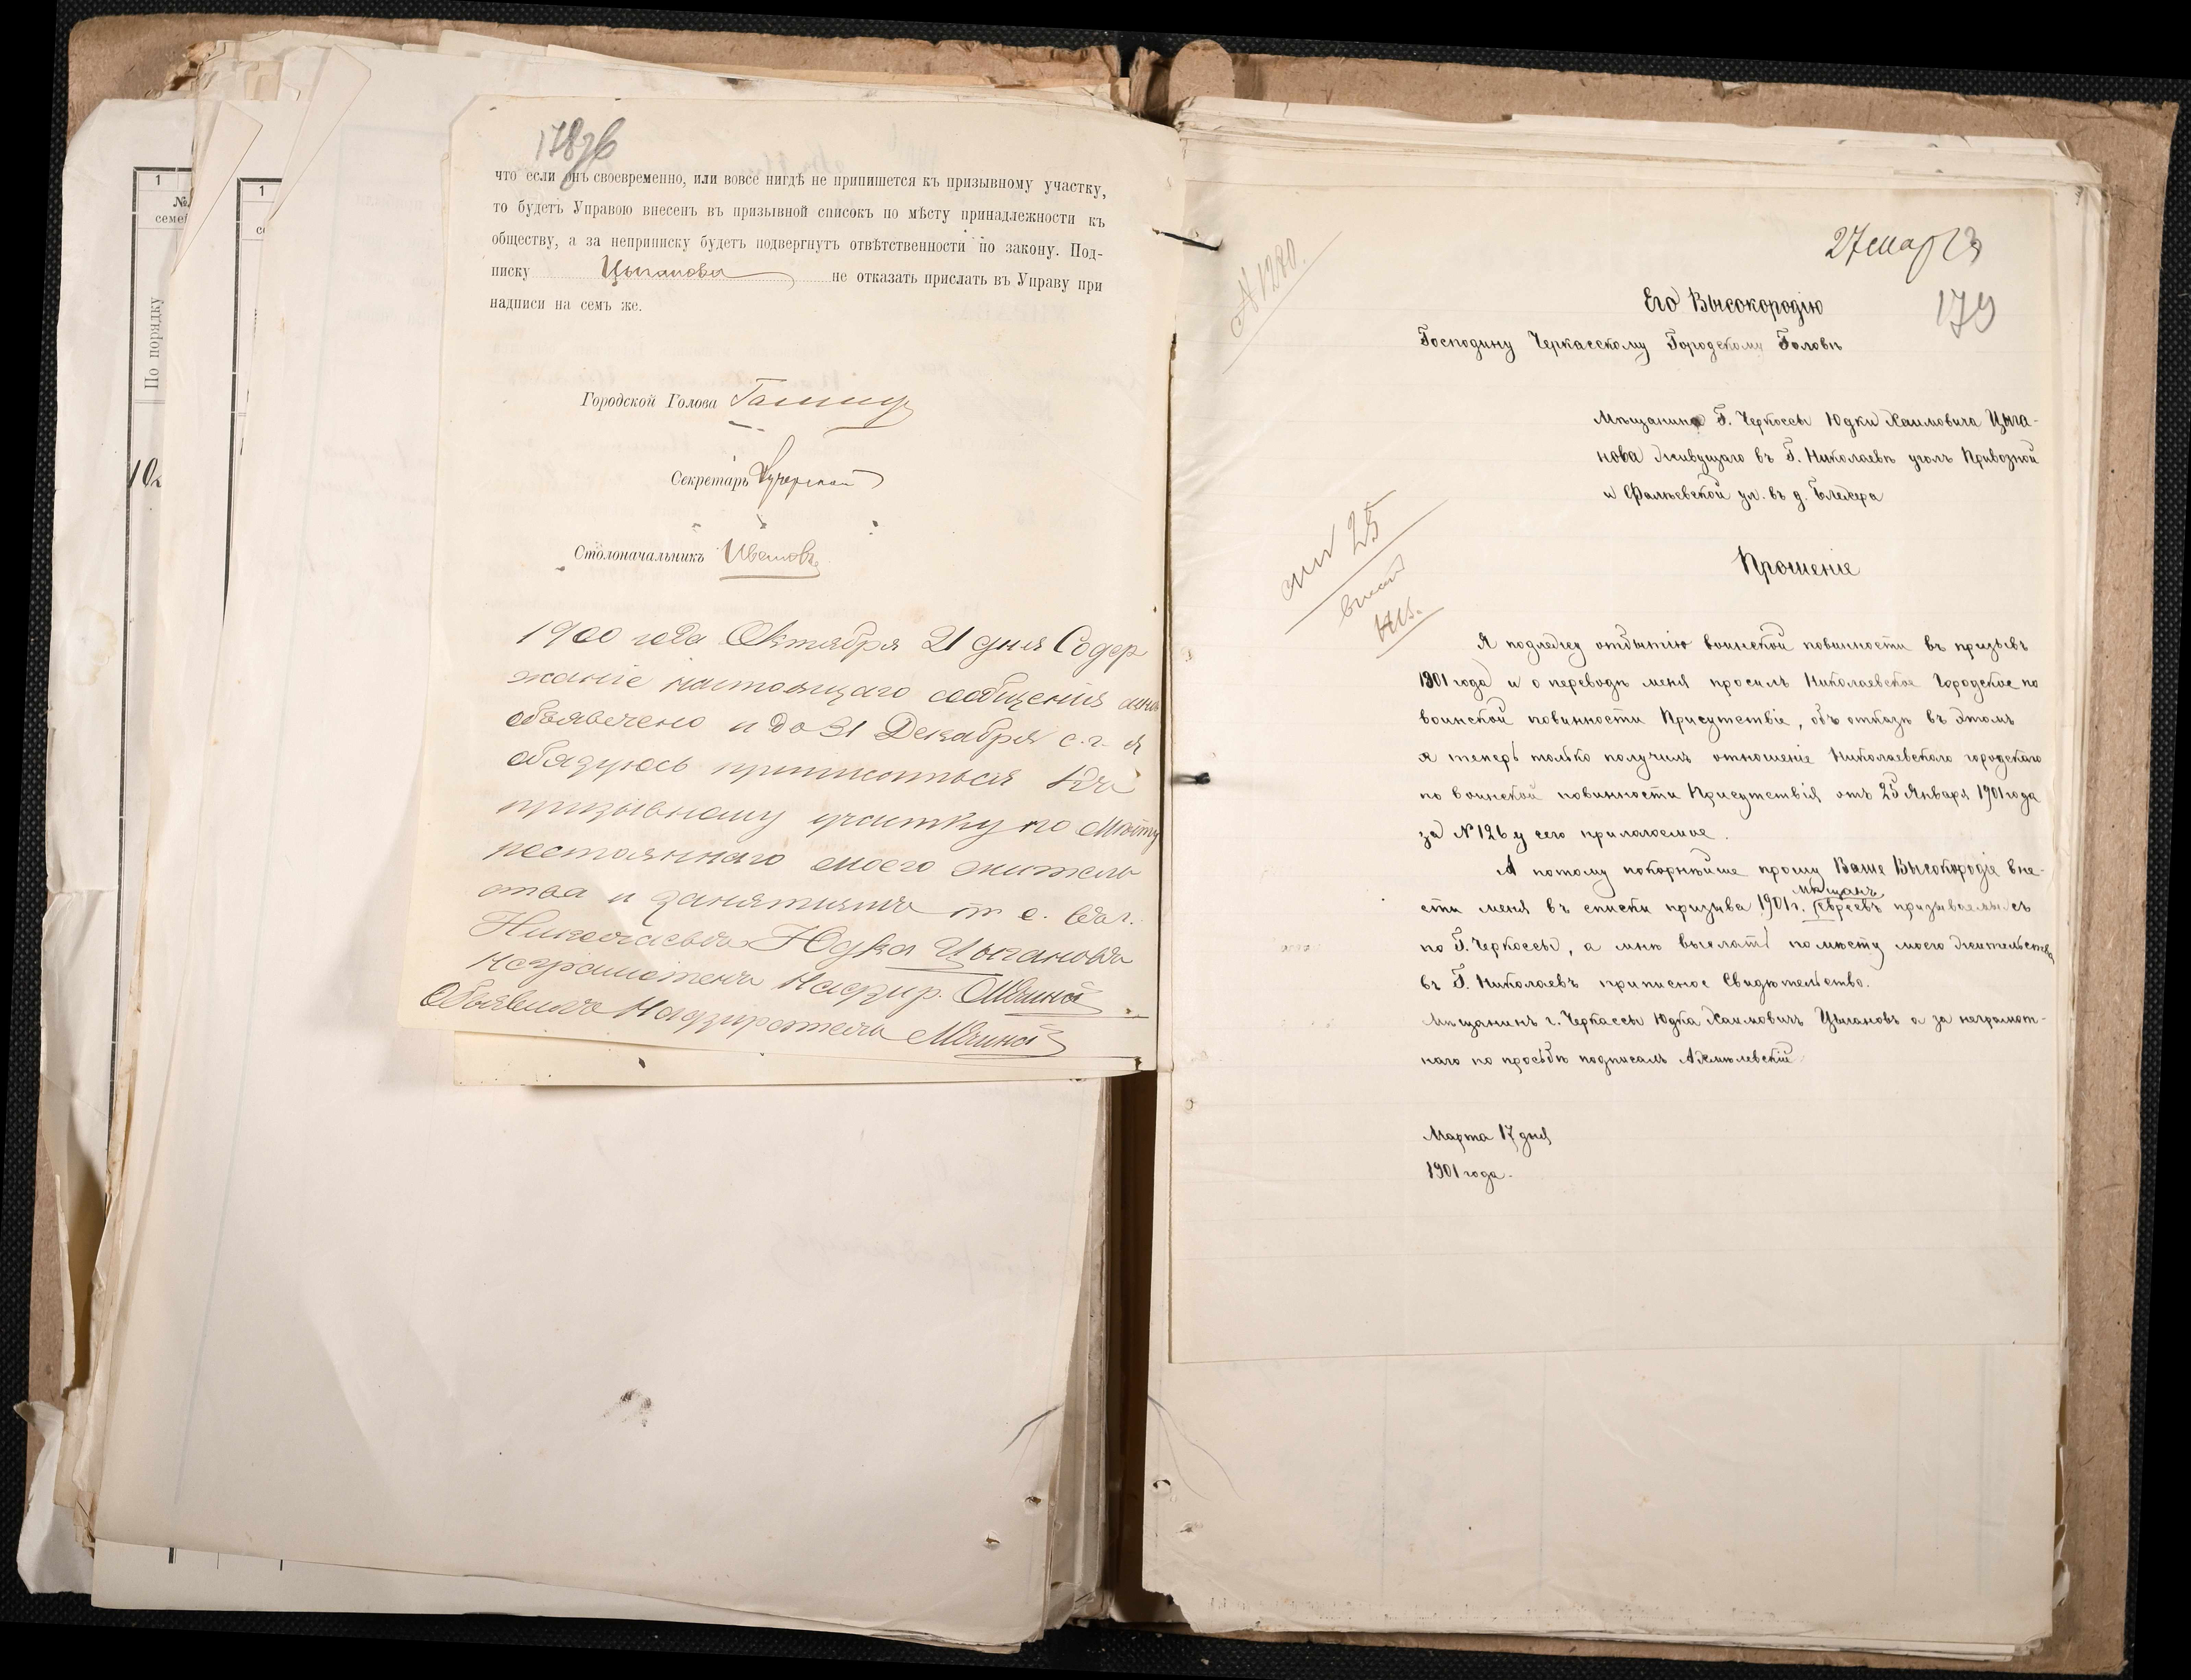 178об
что если онъ своевременно, или вовсе нигдѣ не припишется къ призывному участку,
то будетъ Управою внесенъ въ призывной списокъ по мѣсту принадлежности къ
обществу, а за неприписку будетъ подвергнутъ отвѣтственности по закону. Под-
писку Цыганова не отказать прислать въ Управу при
надписи на семъ же.
Городской Голова
Секретарь
Столоначальникъ Ивановъ
1900 года Октября 21 дня Содер
жаніе настоящаго сообщенія мнѣ
объявлено и до 31 Декабря с.г. я
обязуюсь приписаться къ
призывному участку по мѣсту
постояннаго моего житель
ства и занятиямъ т. е. въ г.
Николаевѣ Юдка Цыгановъ
неграмотенъ Надзир.
Объявилъ Надзиратель
1
№
семей
По порядку
10
1
27 марта
179
№ 1280.
Его Высокородію
Господину Черкасскому Городскому Головѣ
Мѣщанина Г. Черкассы Юдки Хаимовича Цыга-
нова живущаго въ Г. Николаевѣ уголъ Привозной
и Фалѣевской ул. въ д. Блехера
25
Прошеніе
Я подлежу отбытію воинской повинности въ призывъ
1901 года и о переводѣ меня просилъ Николаевское Городское по
воинской повинности Присутствіе, объ отказѣ въ этомъ
я теперь только получилъ отношеніе Николаевскаго городскаго
по воинской повинности Присутствія отъ 25 Января 1901 года
за № 126 у сего прилагаемое.
А потому покорнѣйше прошу Ваше Высокородіе вне-
сти меня въ списки призыва 1901 г. мѣщанъ евреевъ призываемыхъ
по Г. Черкассы, а мнѣ выслать по мѣсту моего жительства
въ Г. Николаевъ приписное Свидѣтельство.
Мѣщанинъ г. Черкассы Юдка Хаимовичъ Цыгановъ а за неграмот-
наго по просьбѣ подписалъ
Марта 17 дня
1901 года.